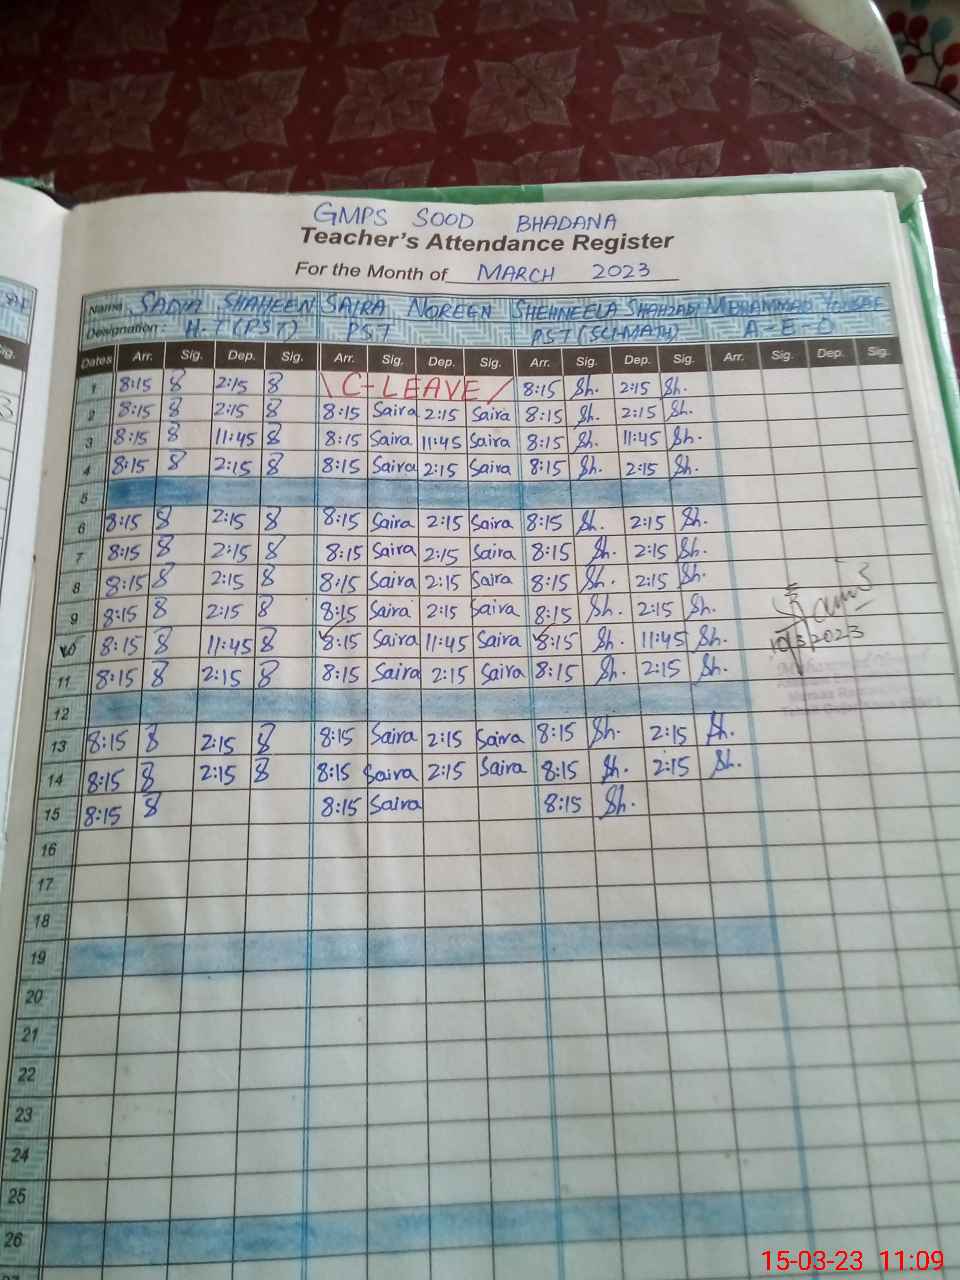 GMPS SOOD BHADANA
Teacher's Attendance Register
For the Month of MARCH 2023
Name SADIA SHAHEEN SAIRA NOREEN SHEHNEELA SHAHZADI MUHAMMAD
Designation: H.T (PST) PST PST (SCI-MATH) A-E-O
Dates Arr. Sig. Dep. Sig. Arr. Sig. Dep. Sig. Arr. Sig. Dep. Sig. Arr. Sig. Dep. Sig.
1 8:15 2:15 C-LEAVE 8:15 Sh. 2:15 Sh.
2 8:15 2:15 8:15 Saira 2:15 Saira 8:15 Sh. 2:15 Sh.
3 8:15 11:45 8:15 Saira 11:45 Saira 8:15 Sh. 11:45 Sh.
4 8:15 2:15 8:15 Saira 2:15 Saira 8:15 Sh. 2:15 Sh.
5
6 8:15 2:15 8:15 Saira 2:15 Saira 8:15 Sh. 2:15 Sh.
7 8:15 2:15 8:15 Saira 2:15 Saira 8:15 Sh. 2:15 Sh.
8 8:15 2:15 8:15 Saira 2:15 Saira 8:15 Sh. 2:15 Sh.
9 8:15 2:15 8:15 Saira 2:15 Saira 8:15 Sh. 2:15 Sh.
10 8:15 11:45 8:15 Saira 11:45 Saira 8:15 Sh. 11:45 Sh. 10/3/2023
11 8:15 2:15 8:15 Saira 2:15 Saira 8:15 Sh. 2:15 Sh.
12
13 8:15 2:15 8:15 Saira 2:15 Saira 8:15 Sh. 2:15 Sh.
14 8:15 2:15 8:15 Saira 2:15 Saira 8:15 Sh. 2:15 Sh.
15 8:15 8:15 Saira 8:15 Sh.
16
17
18
19
20
21
22
23
24
25
26
15-03-23 11:09